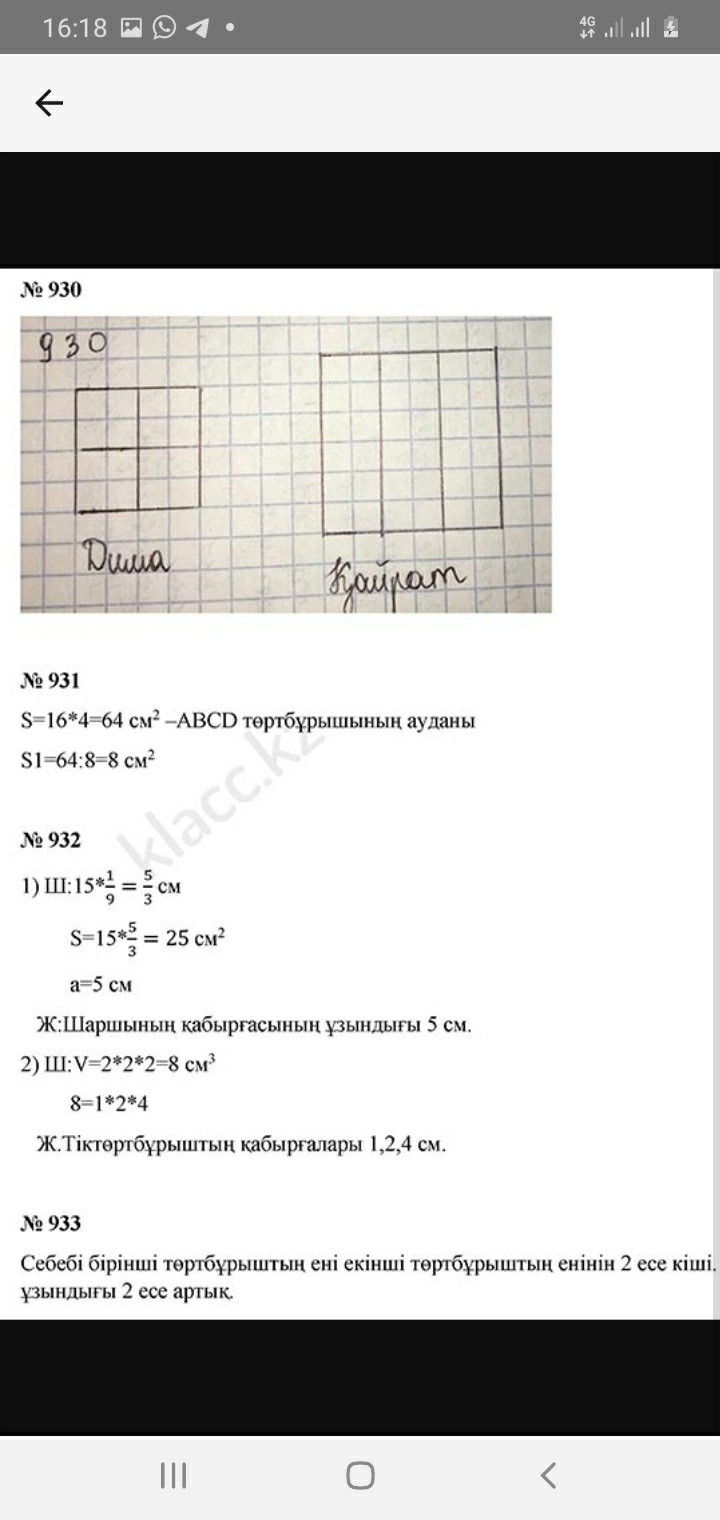 16:18
4G
№ 930
930
Дима
Қайрат
№ 931
S=16*4=64 см² –ABCD төртбұрышының ауданы
S1=64:8=8 см²
klacc.kz
№ 932
1) Ш:15*1/9 = 5/3 см
S=15*5/3 = 25 см²
a=5 см
Ж:Шаршының қабырғасының ұзындығы 5 см.
2) Ш:V=2*2*2=8 см³
8=1*2*4
Ж.Тіктөртбұрыштың қабырғалары 1,2,4 см.
№ 933
Себебі бірінші төртбұрыштың ені екінші төртбұрыштың енінін 2 есе кіші.
ұзындығы 2 есе артық.